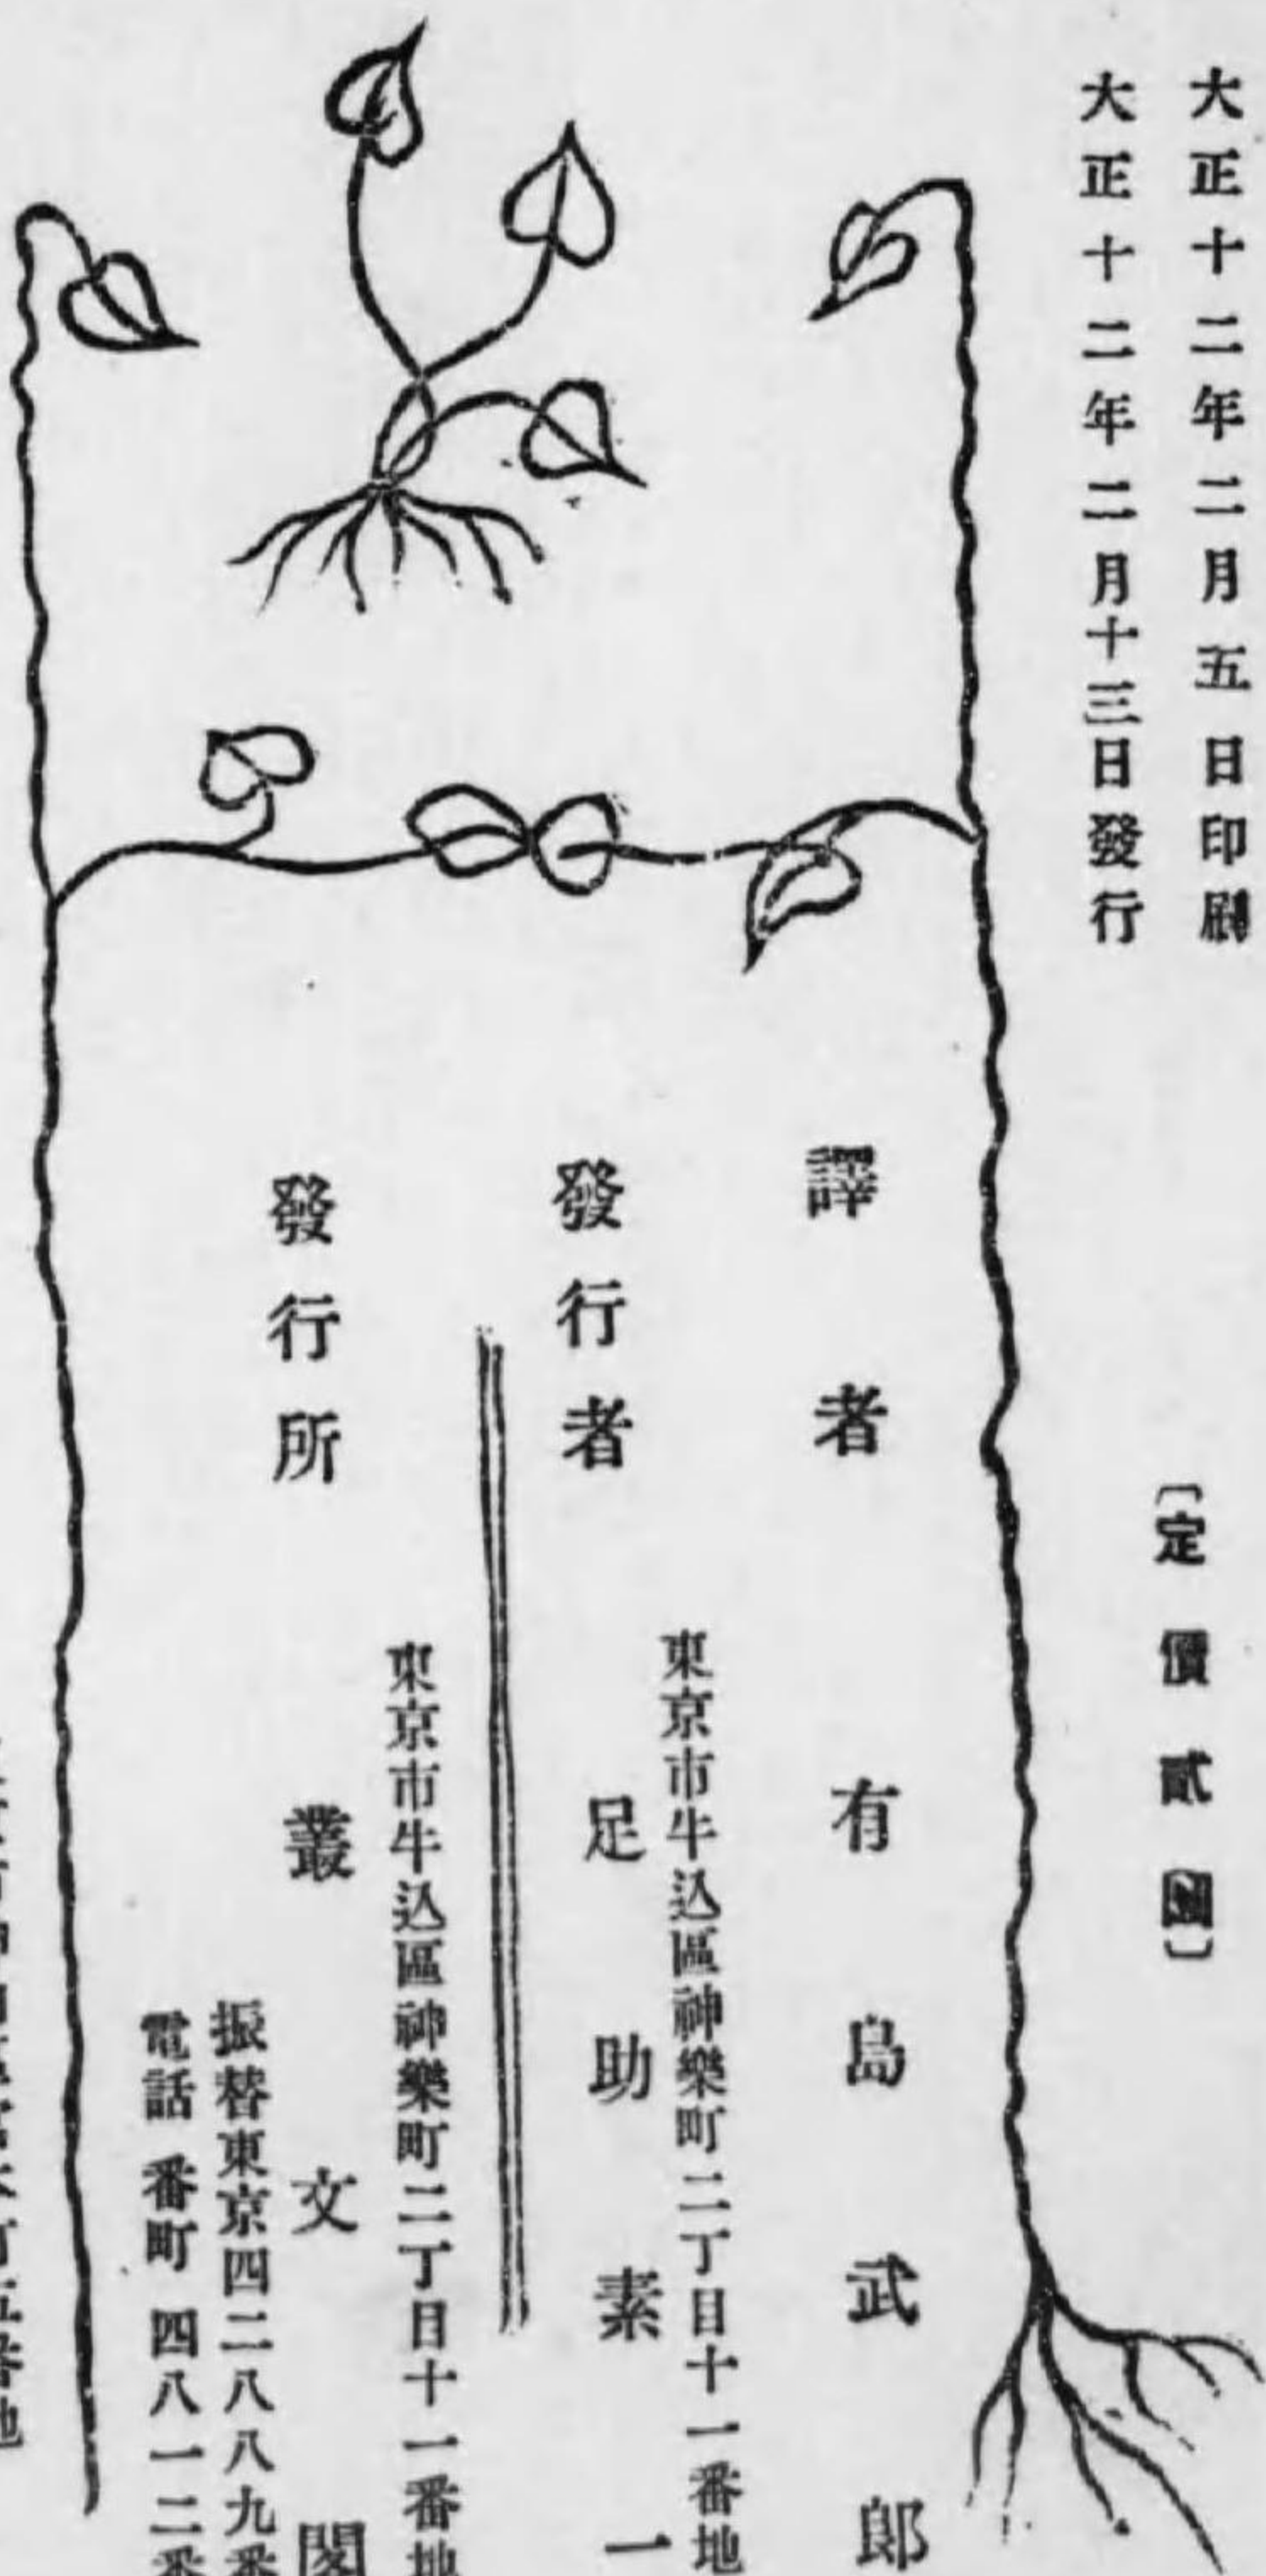 大正十二年二月五日印刷
大正十二年二月十三日發行
〔定價貳圓〕
譯者 有島武郎
東京市牛込區神樂町二丁目十一番地
發行者 足助素一
東京市牛込區神樂町二丁目十一番地
發行所 叢文閣
振替東京四二八八九番
電話番町四八一二番
番地